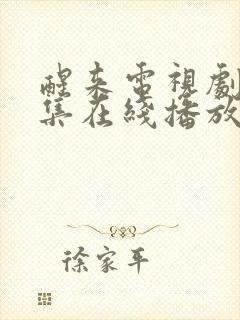 醒来電視劇
集在綫播放
徐家平